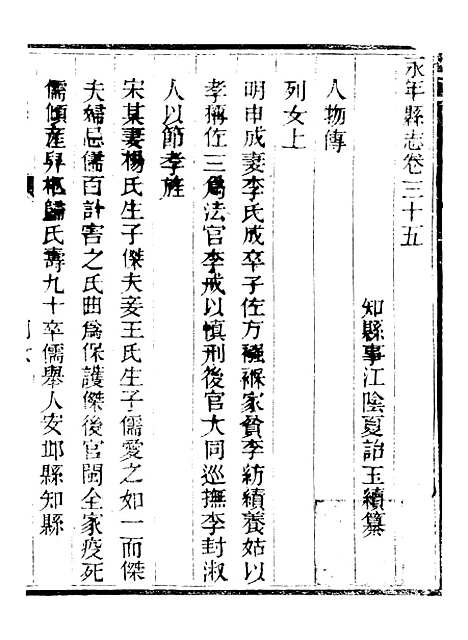 永年縣志卷三十五
知縣事江陰夏詒玉續纂
人物傳
列女上
明申成妻李氏成卒子佐方襁褓家貧李紡績養姑以
孝稱佐三爲法官李戒以慎刑後官大同巡撫李封淑
人以節孝旌
宋某妻楊氏生子傑夫妾王氏生子儒愛之如一而傑
夫婦忌儒百計害之氏曲爲保護傑後官閩全家疫死
儒傾產舁柩歸氏壽九十卒儒舉人安邱縣知縣